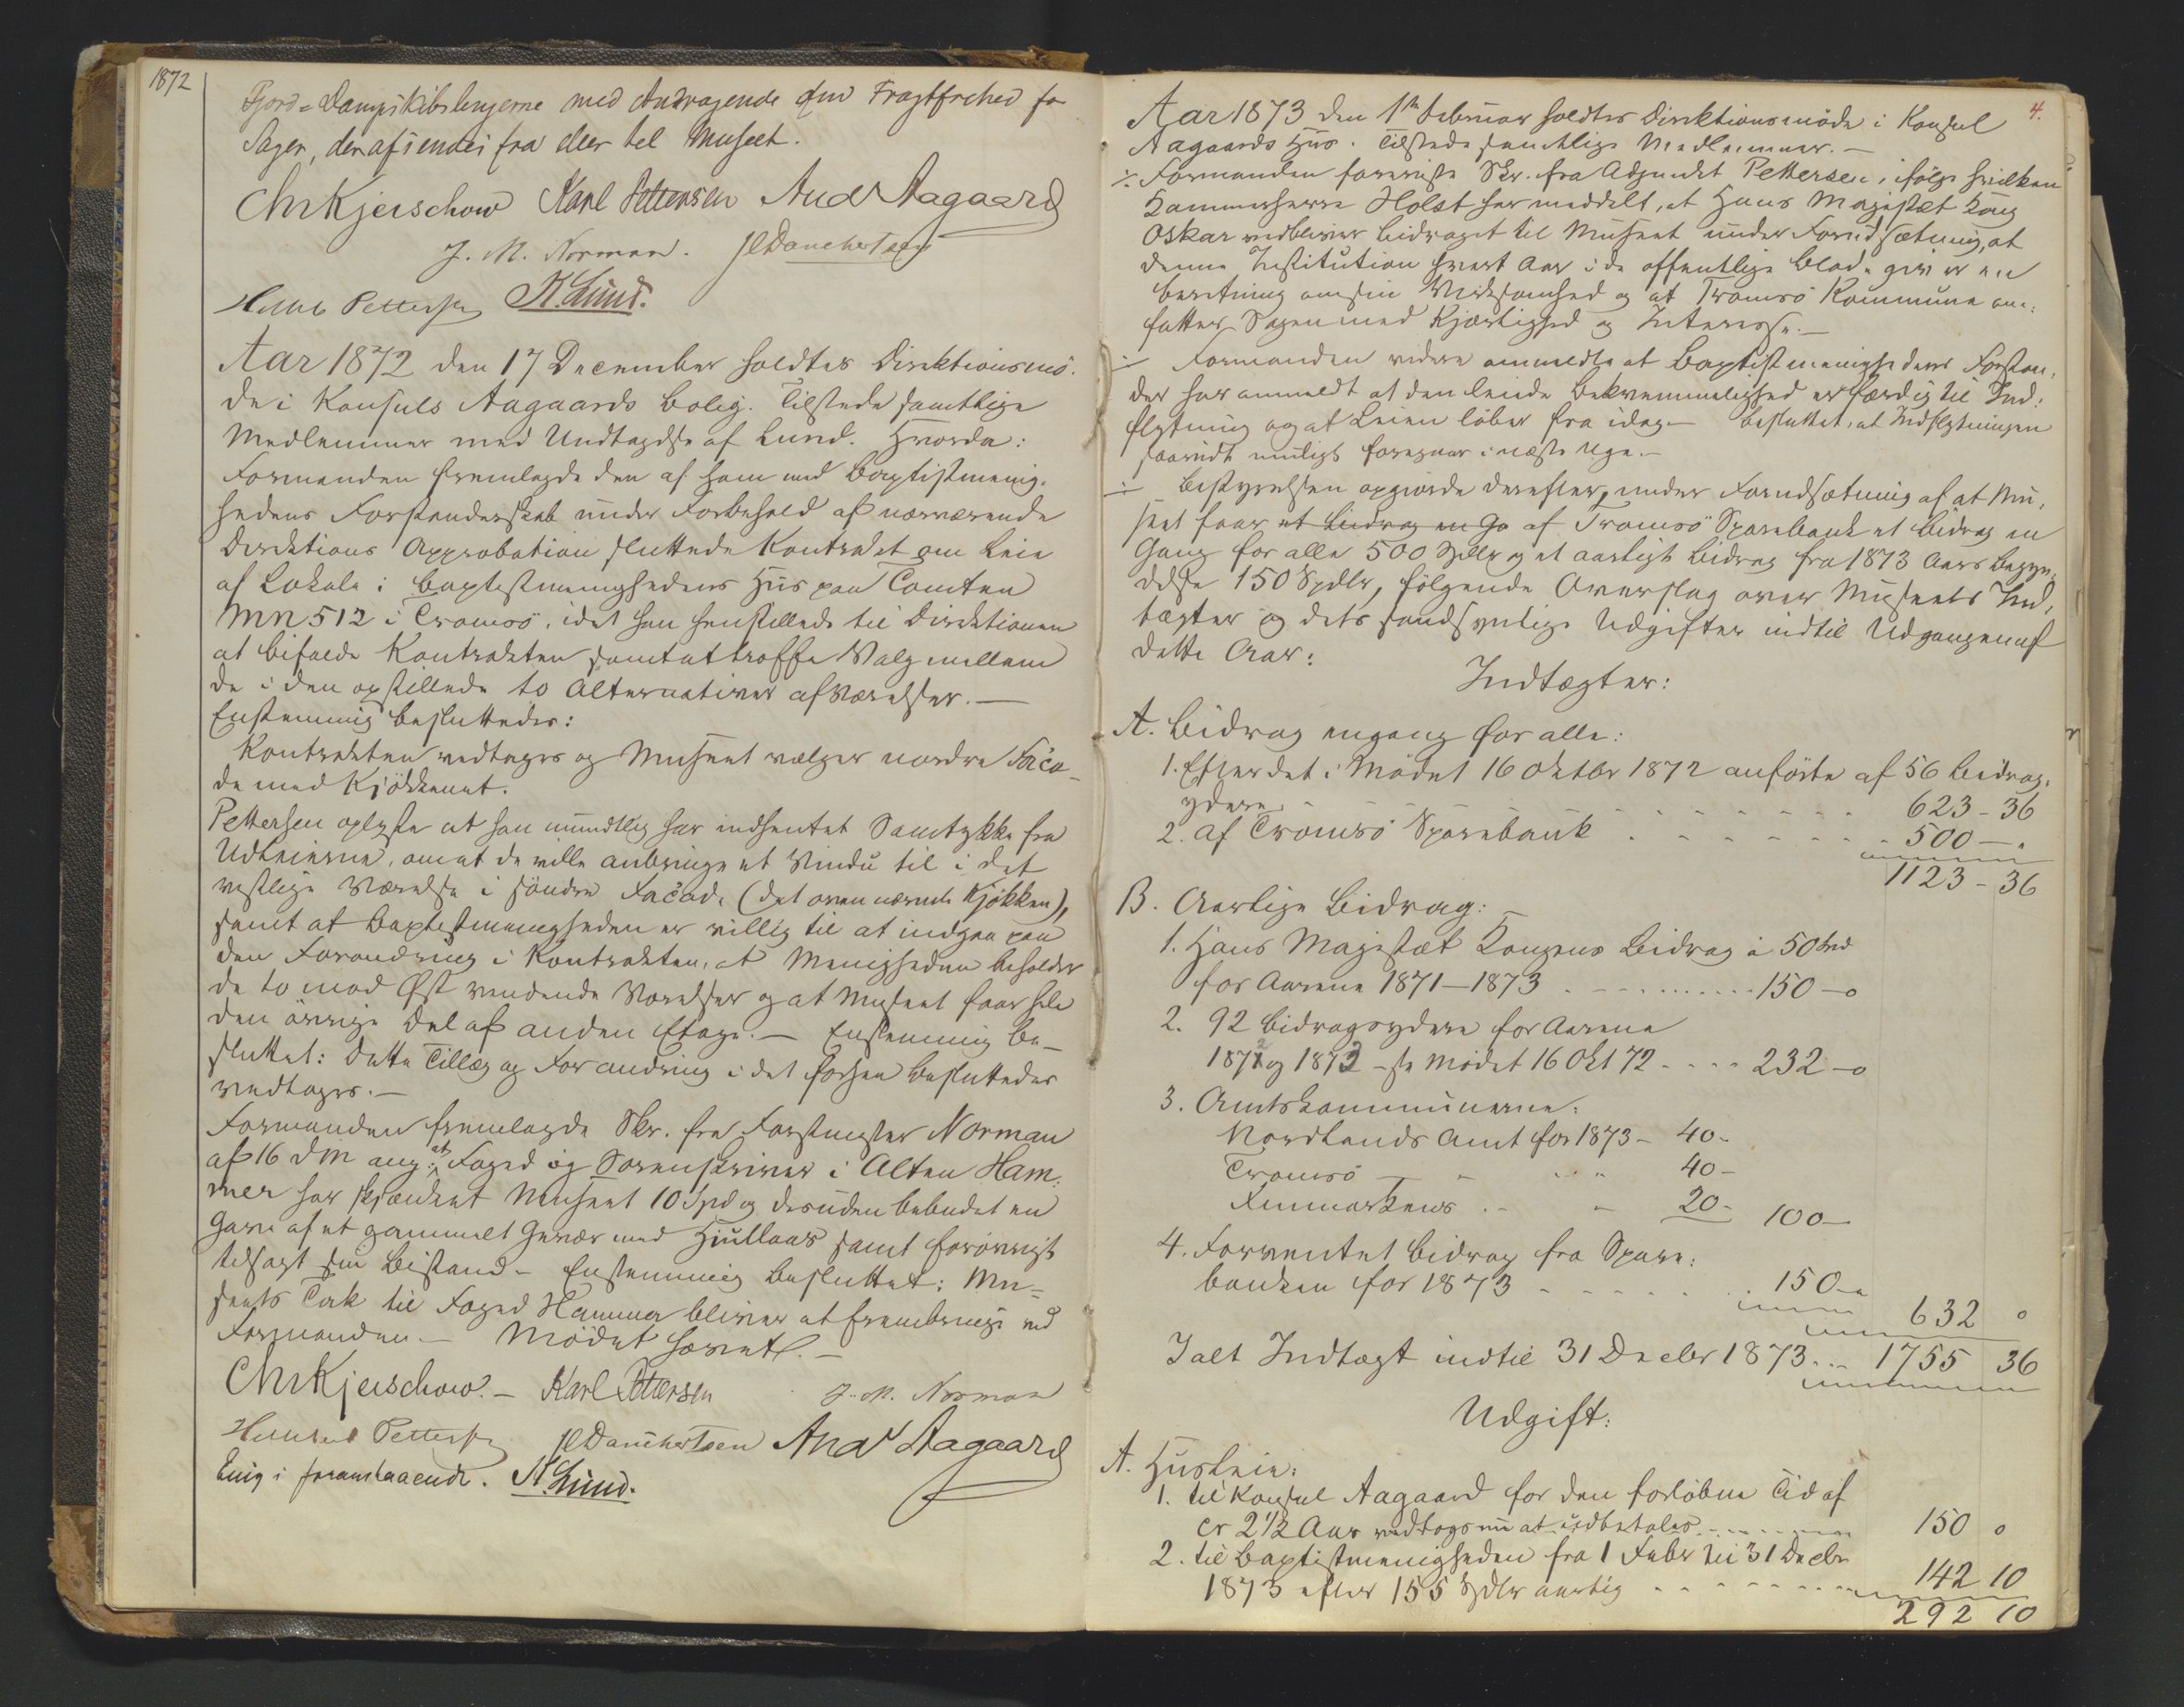 1872
Fjord=Dampskibslinjerne med Andragende om Fragtfrihed for
Sager, der afsendes fra eller til Museet.
Chr Kjerschow Karl Pettersen And Aagaard
J. M. Norman. J L Danchertsen
Hilbert Pettersen K. Lund.
Aar 1872 den 17 December holdtes Direktionsmö-
de i Konsuls Aagaards bolig. Tilstede samtlige
Medlemmer med Undtagelse af Lund. Hvorda:
Formanden fremlagde den af ham med Baptistmenig-
hedens Forstanderskab under Forbehold af nærværende
Direktions Approbation sluttede Kontrakt om Leie
af Lokale i Baptistmenighedens Hus paa Tomten
MN 512 i Tromsö, idet han henstillede til Direktionen
at bifalde Kontrakten samt at træffe Valg mellem
de i den opstillede to Alternativer af Værelser. —
Enstemmig besluttedes:
Kontrakten vedtages og Museet vælger nordre Faca-
de med Kjökkenet.
Pettersen oplyste at han mundtlig har indhentet Samtykke fra
Udleierne, om at de ville anbringe et Vindu til i det
vestlige Værelse i söndre Facade (det ovennævnte Kjökken),
samt at Baptistmenigheden er villig til at indgaa paa
den Forandring i Kontrakten, at Menigheden beholder
de to mod Öst vendende Værelser og at Museet faar hele
den övrige Del af anden Etage. — Enstemmig be-
sluttet: Dette Tillæg og Forandring i det forhen besluttede
vedtages. —
Formanden fremlagde Skr. fra Forstmester Norman
af 16 dM ang: at Foged og Sorenskriver i Alten Ham-
mer har skjænket Museet 10 Spd og desuden bebudet en
Gave af et gammelt Gevær med Hjullaas samt forövrigt
tilsagt sin Bistand. — Enstemmig besluttet: Mu-
seets Tak til Foged Hammer bliver at frembringe ved
Formanden. — Mödet hævet. —
Chr Kjerschow. — Karl Pettersen J. M. Norman
Hilbert Pettersen J L Danchertsen And Aagaard
Enig i foranstaaende. K. Lund.
4.
Aar 1873 den 1ste Februar holdtes Direktionsmöde i Konsul
Aagaards Hus. Tilstede samtlige Medlemmer. —
÷ Formanden foreviste Skr. fra Adjunkt Pettersen, ifölge hvilken
Kammerherre Holst har meddelt, at Hans Majestæt Kong
Oskar vedbliver Bidraget til Museet under Forudsætning, at
denne Institution hvert Aar i de offentlige Blade giver en
Beretning om sin Virksomhed og at Tromsö Kommune om-
fatter Sagen med Kjærlighed og Interesse. —
÷ Formanden videre anmeldte at Baptistmenighedens Forstan-
der har anmeldt at den leiede Bekvemmelighed er færdig til Ind-
flytning og at Leien löber fra idag. — Besluttet, at Indflytningen
saavidt muligt foregaar i næste Uge. —
÷ Bestyrelsen opgjorde derefter, under Forudsætning af at Mu-
seet faar et Bidrag en Ga af Tromsö Sparebank et Bidrag en
Gang for alle 500 Spdlr og et aarligt Bidrag fra 1873 Aars Begyn-
delse 150 Spdlr, fölgende Overslag over Museets Ind-
tægter og dets sandsynlige Udgifter indtil Udgangen af
dette Aar:
Indtægter:
A. Bidrag engang for alle:
1. Efter det i Mödet 16 Oktbr 1872 anförte af 56 Bidrag-
ydere 623 - 36
2. af Tromsö Sparebank 500 — "
1123 - 36
B. Aarlige Bidrag:
1. Hans Majestæt Kongens Bidrag à 50 Spd
for Aarene 1871—1873 150 — o
2. 92 Bidragsydere for Aarene
1872 og 1873 - se Mödet 16 Okt 72 232 — o
3. Amtskommunerne:
Nordlands Amt for 1873 - 40 -
Tromsö — - " 40 -
Finmarkens - - 20 - 100 —
4. Forventet Bidrag fra Spare-
banken for 1873 150 — o
632 o
Ialt Indtægt indtil 31 Decbr 1873 1755 36
Udgift:
A. Husleie:
1. til Konsul Aagaard for den forlöbne Tid af
cr 2 1/2 Aar vedtoges nu at udbetales 150 o
2. til Baptistmenigheden fra 1 Febr til 31 Decbr
1873 efter 155 Spdlr aarlig 142 10
292 10